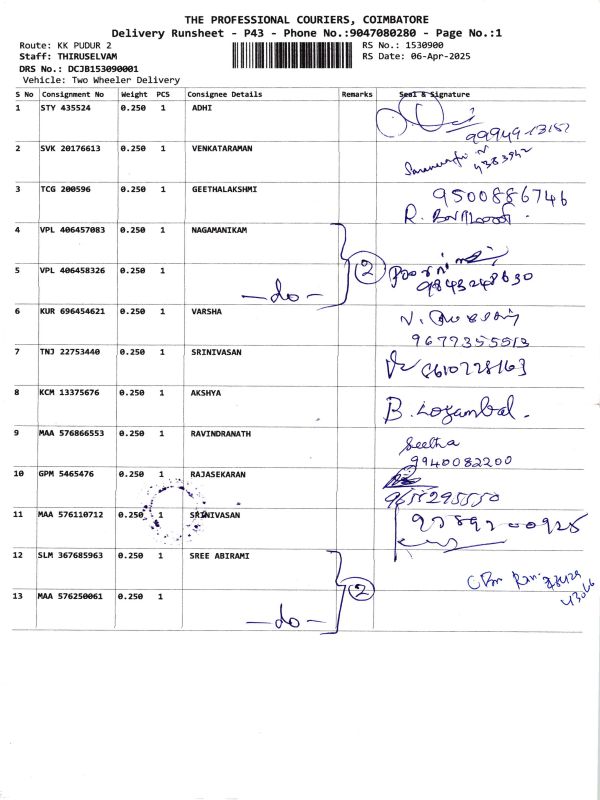 THE PROFESSIONAL COURIERS, COIMBATORE
Delivery Runsheet - P43 - Phone No.:9047080280 - Page No.:1
Route: KK PUDUR 2
RS No.: 1530900
Staff: THIRUSELVAM
RS Date: 06-Apr-2025
DRS No.: DCJB153090001
Vehicle: Two Wheeler Delivery
S No Consignment No Weight PCS Consignee Details Remarks Seal & Signature
1 STY 435524 0.250 1 ADHI
2 SVK 20176613 0.250 1 VENKATARAMAN
3 TCG 200596 0.250 1 GEETHALAKSHMI 9500886746
R.
4 VPL 406457083 0.250 1 NAGAMANIKAM
2
5 VPL 406458326 0.250 1 -do- 9843248630
6 KUR 696454621 0.250 1 VARSHA
9677355513
7 TNJ 22753440 0.250 1 SRINIVASAN 8610728163
8 KCM 13375676 0.250 1 AKSHYA B. Logambal.
9 MAA 576866553 0.250 1 RAVINDRANATH Seetha
9940082200
10 GPM 5465476 0.250 1 RAJASEKARAN
9655295550
11 MAA 576110712 0.250 1 SRINIVASAN 9789200925
12 SLM 367685963 0.250 1 SREE ABIRAMI
2
13 MAA 576250061 0.250 1 -do-